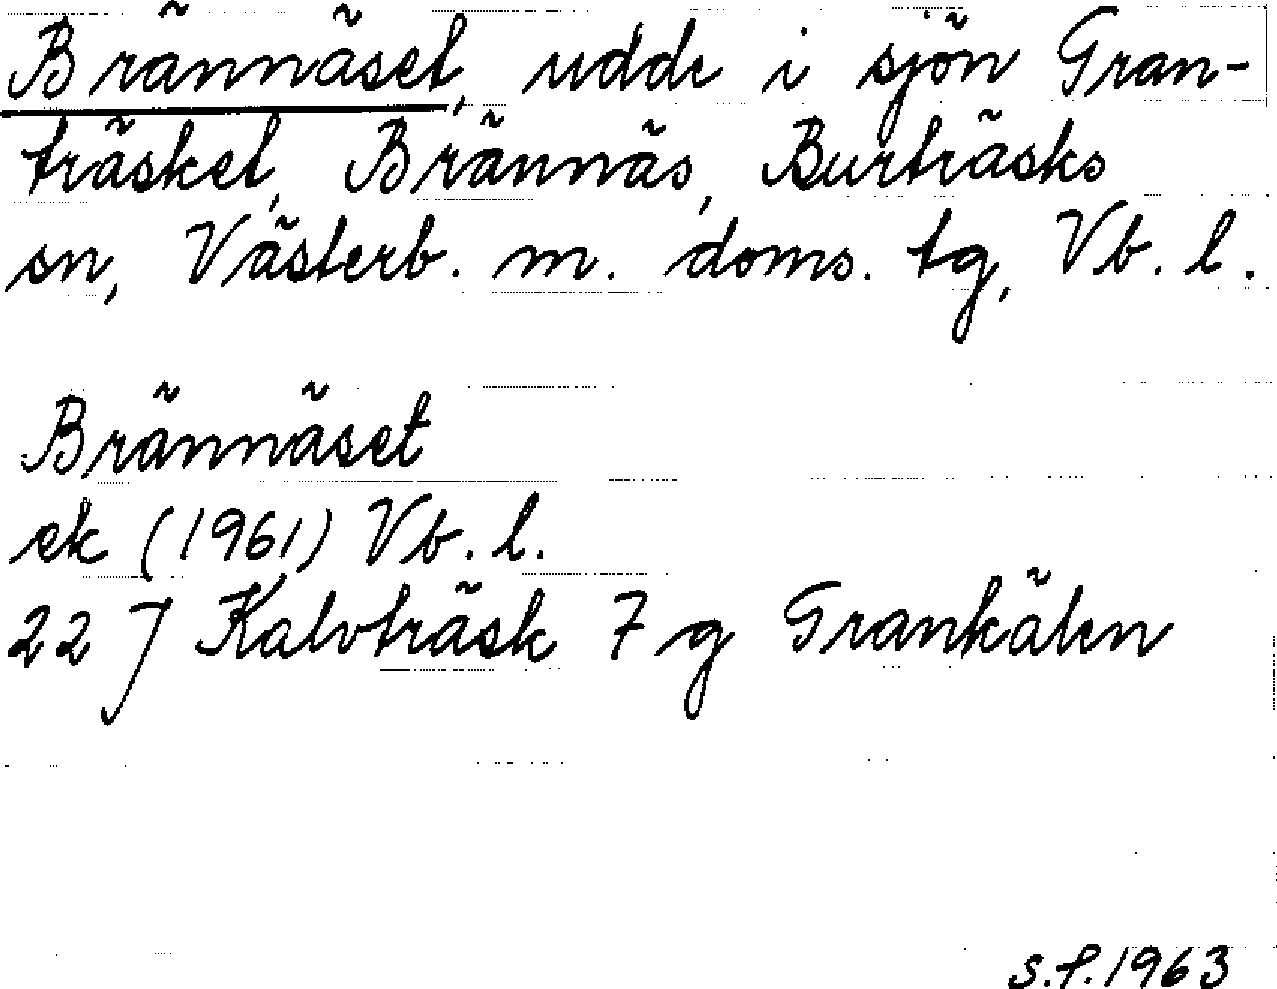 Brännäset, udde i sjön Gran-
träsket, Brännäs, Burträsks
sn, Västerb. m. doms. tg, Vb. l.
Brännäset
ek (1961) Vb. l.
22 J Kalvträsk 7 g Grankälen
S.P. 1963